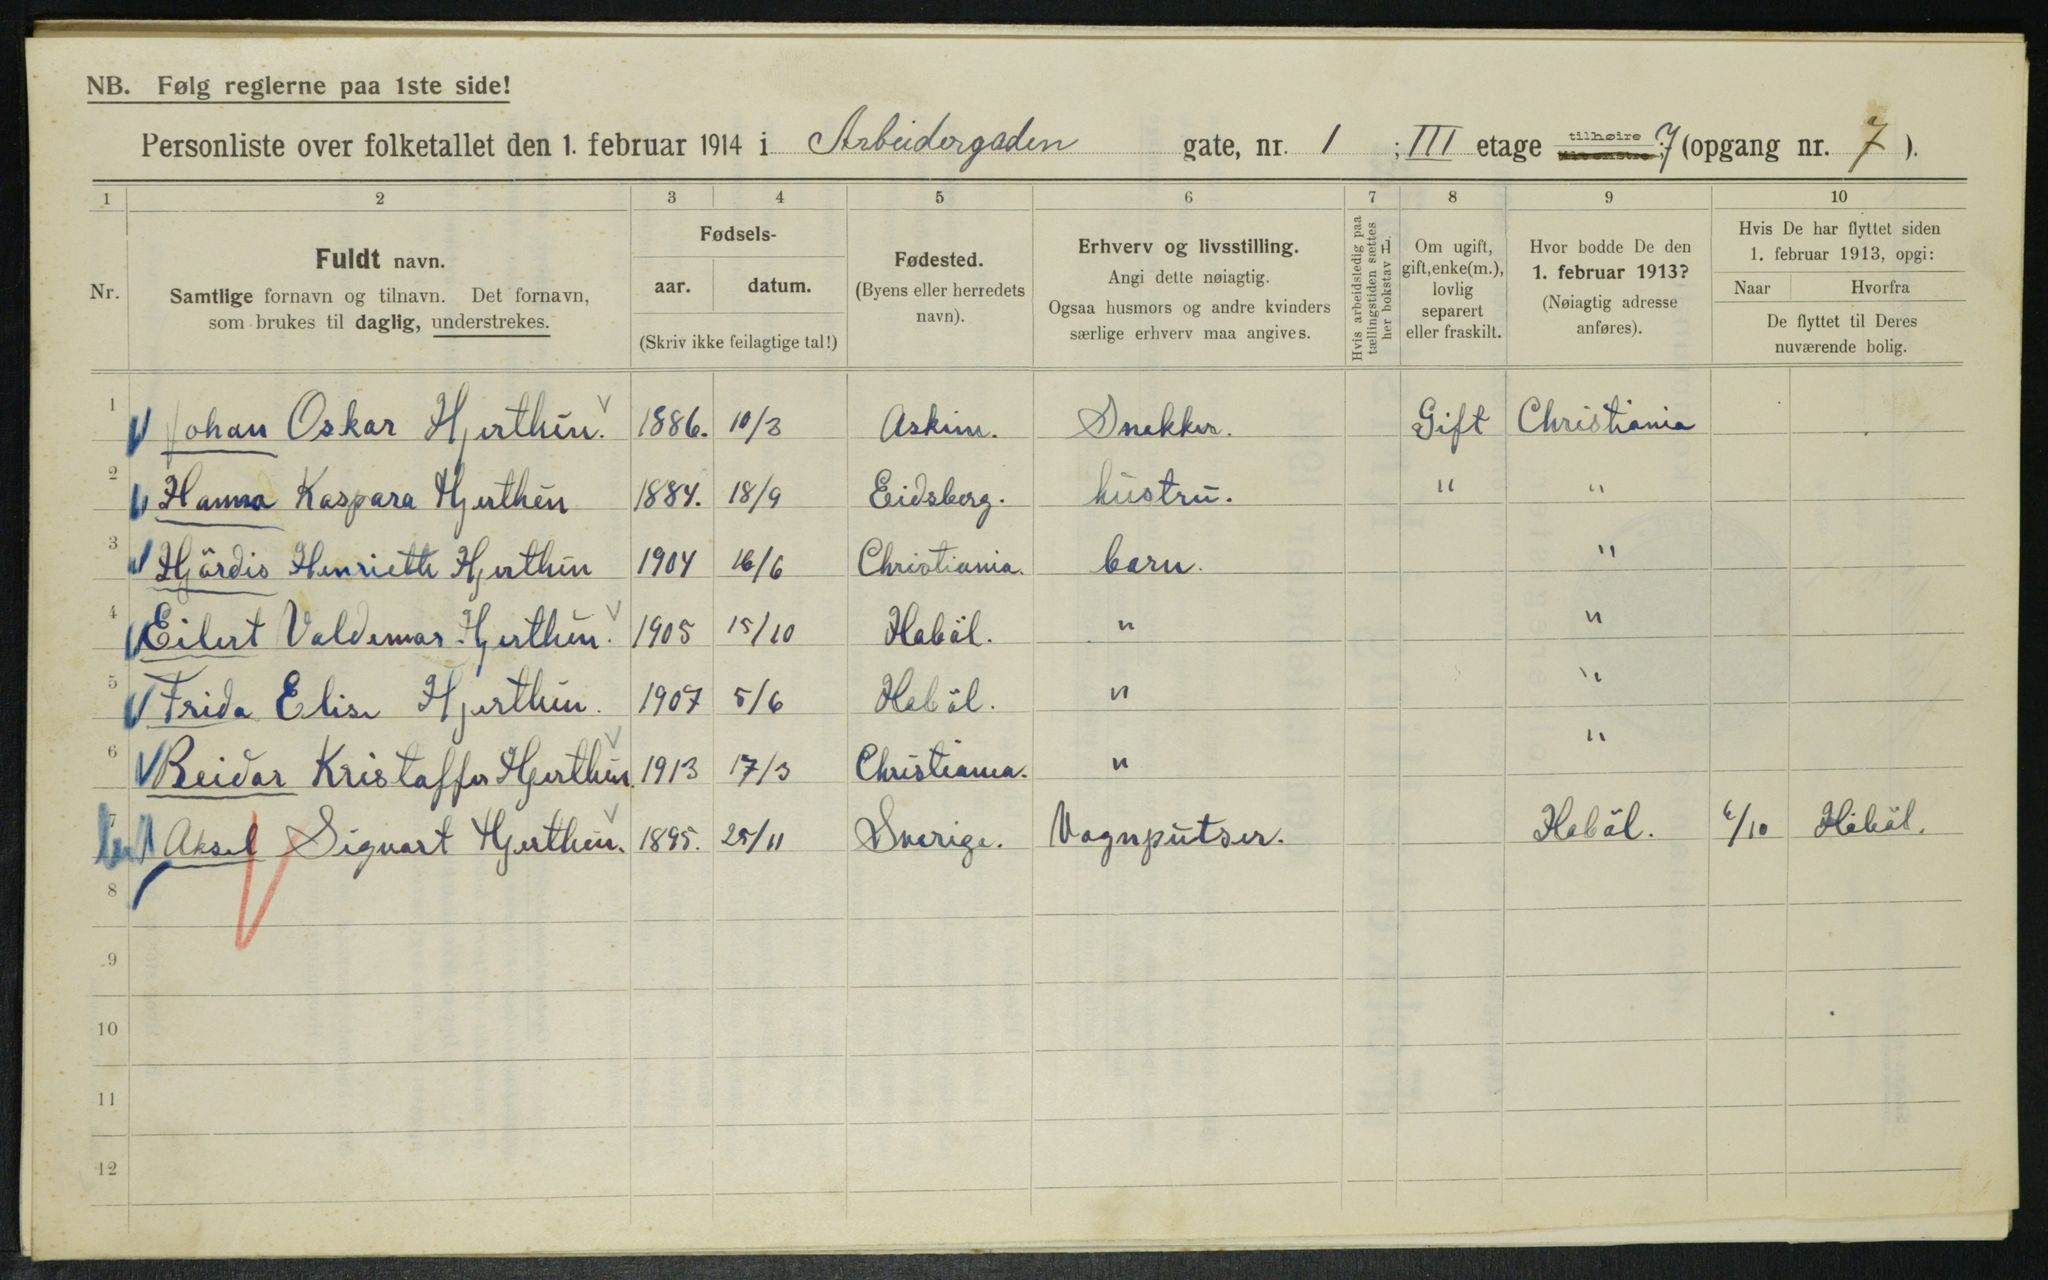 NB. Følg reglerne paa 1ste side!
Personliste over folketallet den 1. februar 1914 i Arbeidergaden gate, nr. 1 ; III etage tilhøire 7 (opgang nr. 7 ).
1 2 3 4 5 6 7 8 9 10
Nr.
Fuldt navn.
Samtlige fornavn og tilnavn. Det fornavn,
som brukes til daglig, understrekes.
Fødsels-
aar. datum.
(Skriv ikke feilagtige tal!)
Fødested.
(Byens eller herredets
navn).
Erhverv og livsstilling.
Angi dette nøiagtig.
Ogsaa husmors og andre kvinders
særlige erhverv maa angives.
Hvis arbeidsledig paa
tællingstiden sættes
her bokstav L.
Om ugift,
gift, enke(m.),
lovlig
separert
eller fraskilt.
Hvor bodde De den
1. februar 1913?
(Nøiagtig adresse
anføres).
Hvis De har flyttet siden
1. februar 1913, opgi:
Naar Hvorfra
De flyttet til Deres
nuværende bolig.
1 Johan Oskar Hjerthén. 1886. 10/3 Askim. Snekker. Gift Christiania
2 Hanna Kaspara Hjerthén 1884. 18/9 Eidsberg. hustru. " "
3 Hjördis Henriette Hjerthén 1904 16/6 Christiania. barn. "
4 Eilert Valdemar Hjerthén. 1905 15/10 Haböl. " "
5 Frida Elise Hjerthén. 1907 5/6 Haböl. " "
6 Reidar Kristaffer Hjerthén. 1913 17/3 Christiania. " "
7 Aksel Sigvart Hjerthén. 1895. 25/11 Sverige. Vognputser. Haböl. /10 Haböl.
8
9
10
11
12